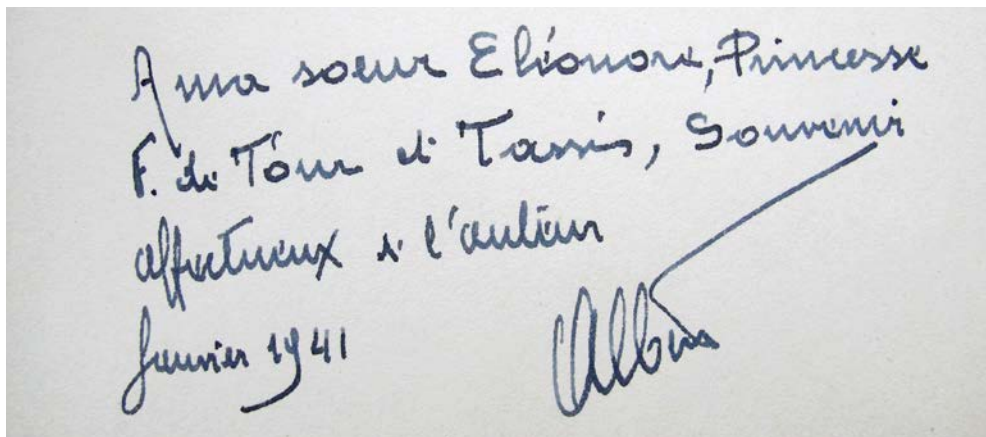 A ma soeur Eléonore, Princesse
F. de Tour et Tassis, Souvenir
affectueux de l'auteur
Janvier 1941